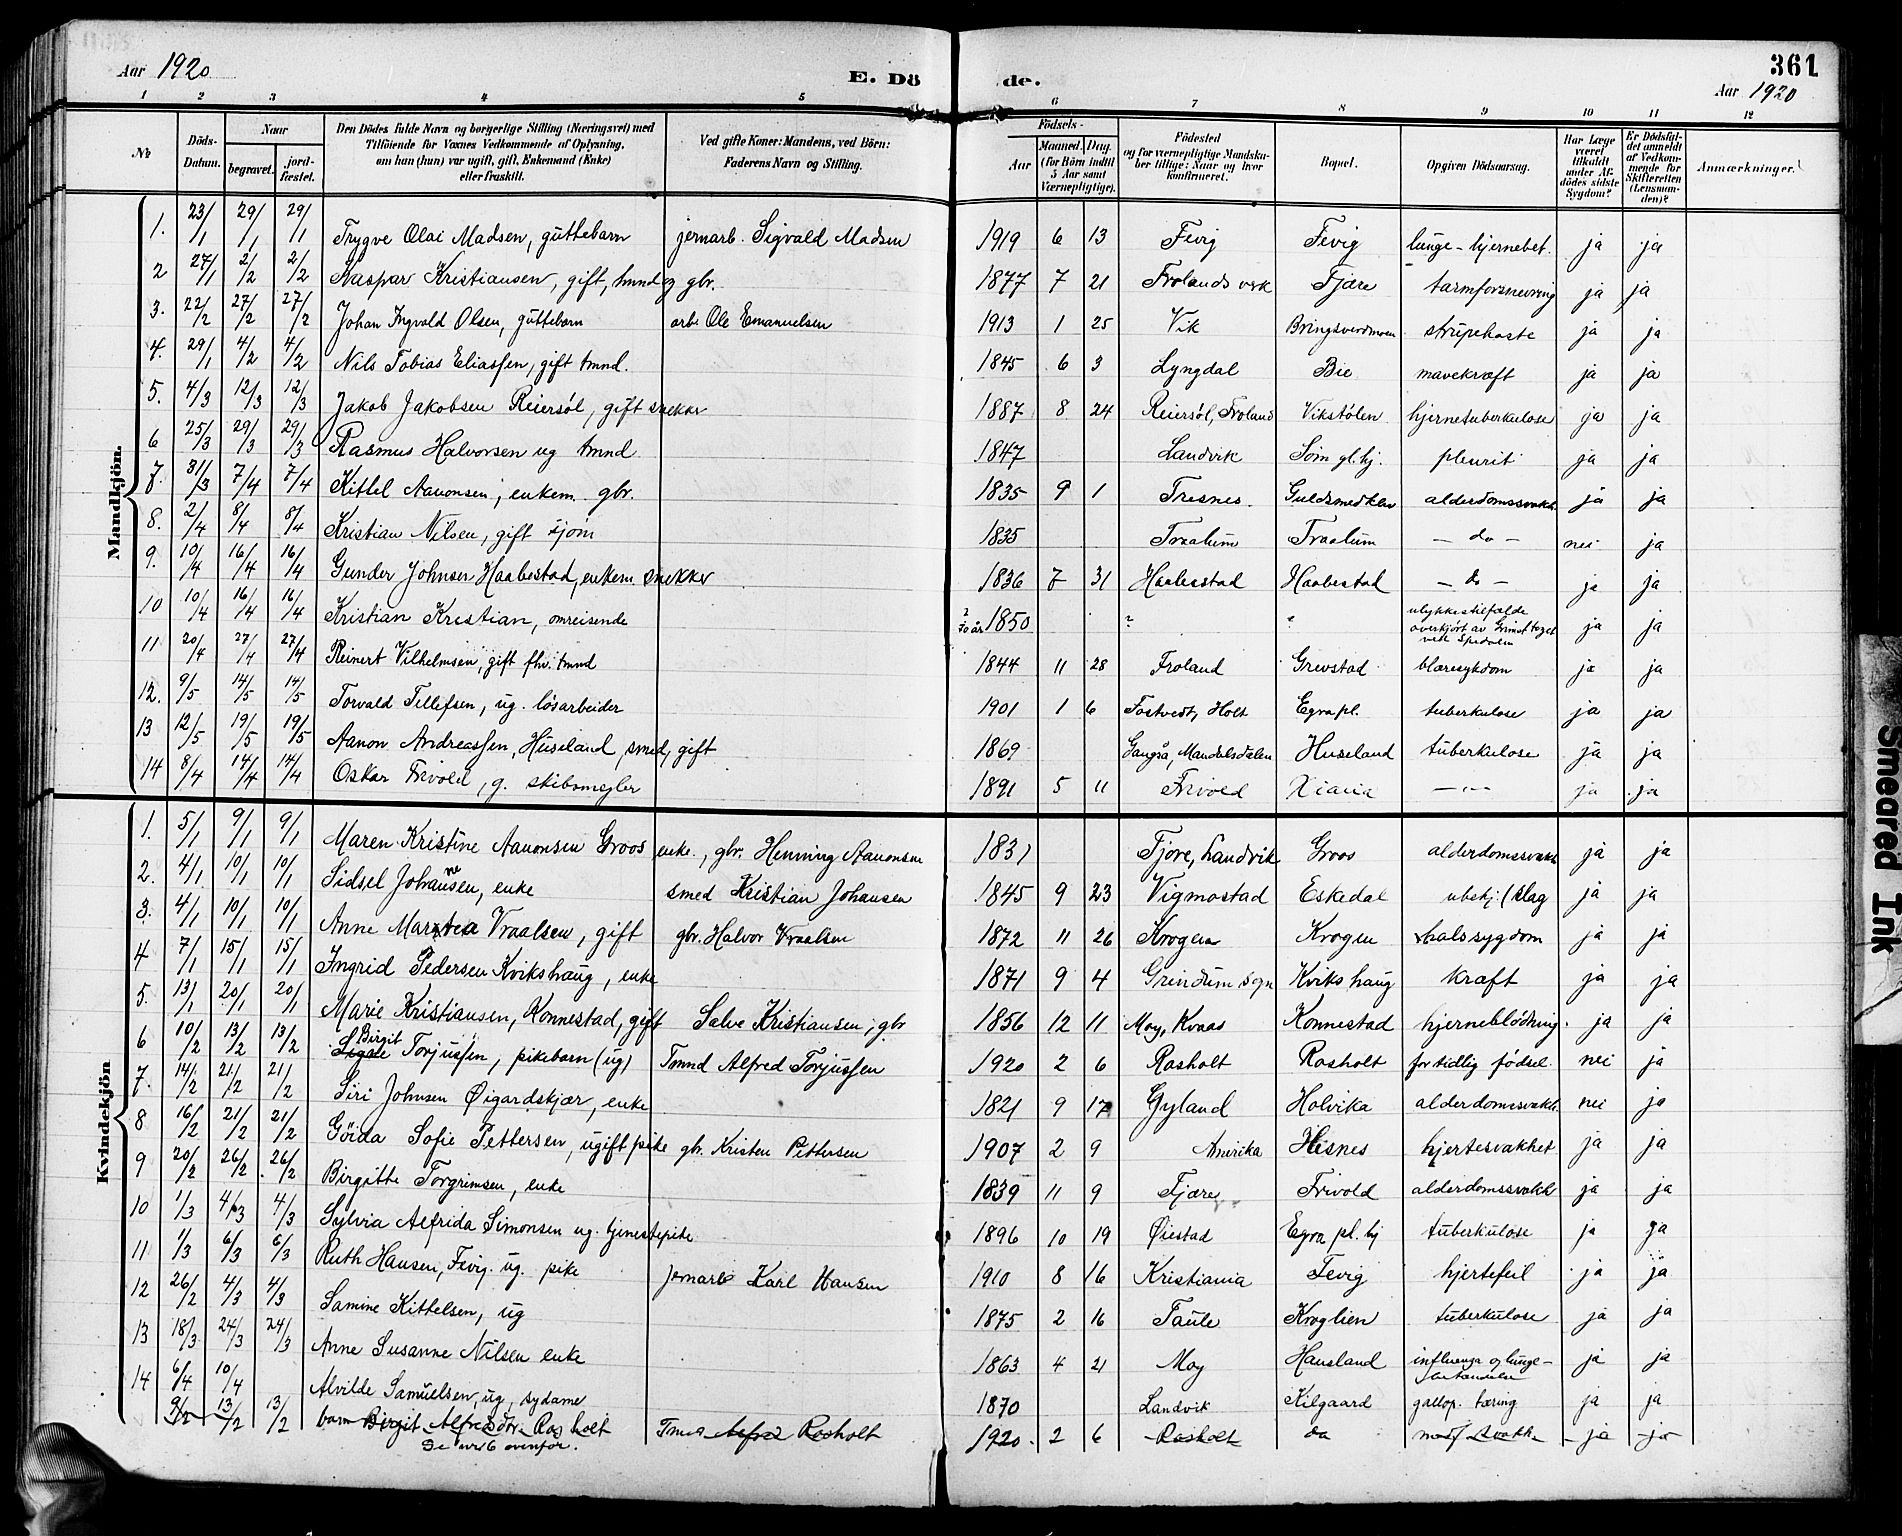 Aar 1920. E. Dö de. 361
Aar 1920
1 2 3 4 5 6 7 8 9 10 11 12
No Döds-Datum. Naar begravet. jordfæstet. Den Dödes fulde Navn og borgerlige Stilling (Næringsvei) med Tilföiende for Voxnes Vedkommende af Oplysning, om han (hun) var ugift, gift, Enkemand (Enke) eller fraskilt. Ved gifte Koner: Mandens, ved Börn: Faderens Navn og Stilling. Födsels- Aar Maaned. Dag. (for Börn indtil 5 Aar samt Værnepligtige). Födested og for værnepligtige Mandskaber tillige: Naar og hvor konfirmeret. Bopæl. Opgiven Dödsaarsag. Har Læge været tilkaldt under Afdödes sidste Sygdom? Er Dödsfaldet anmeldt af Vedkommende for Skifteretten (Lensmanden)? Anmærkninger.
Mandkjön.
1. 23/1 29/1 29/1 Trygve Olai Madsen, guttebarn jernarb. Sigvald Madsen 1919 6 13 Fevig Fevig lunge-hjernebet. ja ja
2 27/1 2/2 2/2 Kaspar Kristiansen, gift, tmnd og gbr. 1877 7 21 Frolands verk Fjære tarmforsnevring ja ja
3. 22/2 27/2 27/2 Johan Ingvald Olsen, guttebarn arb. Ole Emanuelsen 1913 1 25 Vik Bringsverdmoen strupehoste ja ja
4. 29/1 4/2 4/2 Nils Tobias Eliassen, gift tmnd. 1845 6 3 Lyngdal Bie mavekræft ja ja
5. 4/3 12/3 12/3 Jakob Jakobsen Reiersøl, gift snekker 1887 8 24 Reiersøl, Froland Vikstølen hjernetuberkulose ja ja
6 25/3 29/3 29/3 Rasmus Halvorsen ug tmnd 1847 Landvik Søm gl.hj. pleurit ja ja
7. 31/3 7/4 7/4 Kittel Aanonsen, enkem. gbr. 1835 9 1 Tresnes. Guldsmedklev alderdomssvakh. ja ja
8. 2/4 8/4 8/4 Kristian Nilsen, gift sjøm 1835 Traalum Traalum - do - nei ja
9. 10/4 16/4 16/4 Gunder Johnsen Haabestad, enkem. snekker 1836 7 31 Haabestad Haabestad - do - ja ja
10 10/4 16/4 16/4 Kristian Kristian, omreisende ? 70 år 1850 ? ulykkestilfælde overkjørt av Grimst toget ved ja ja
11 20/4 27/4 27/4 Reinert Vilhelmsen, gift fhv. tmnd 1844 11 28 Froland Grevstad blæresykdom ja ja
12. 9/5 14/5 14/5 Torvald Tellefsen, ug. løsarbeider 1901 1 6 Fostvedt, Holt Egra pl. tuberkulose ja ja
13 12/5 19/5 19/5 Aanon Andreassen, Huseland, smed, gift 1869 Gangså, Mandalsdalen Huseland tuberkulose ja ja
14 8/4 14/4 14/4 Oskar Frivold, g. skibsmegler 1891 5 11 Frivold Xiania - " - ja ja
Kvindekjön
1. 5/1 9/1 9/1 Maren Kristine Aanonsen Groos enke., gbr. Henning Aanonsen 1831 Fjære, Landvik Groos alderdomssvakh ja ja
2. 4/1 10/1 10/1 Sidsel Johansen, enke smed Kristian Johansen 1845 9 23 Vigmostad Eskedal ubskj. (slag ja ja
3. 4/1 10/1 10/1 Anne Martea Vraalsen, gift gbr. Halvor Vraalsen 1872 11 26 Krogen Krogen halssygdom ja ja
4 7/1 15/1 15/1 Ingrid Pedersen Kvikshaug, enke 1871 9 4 Grindum sogn Kvikshaug kræft ja ja
5. 13/1 20/1 20/1 Marie Kristiansen, Konnestad, gift Salve Kristiansen, gbr 1856 12 11 Moy, Kvaas Konnestad hjerneblödning. ja ja
6 10/2 13/2 13/2 Birgit Torjussen, pikebarn (ug) Tmnd Alfred Torjussen 1920 2 6 Rosholt Rosholt for tidlig födsel. nei ja
7. 14/2 21/2 21/2 Siri Johnsen Øigardskjær, enke 1821 9 17 Gyland Holvika alderdomssvakh. nei ja
8 16/2 21/2 21/2 Göida Sofie Pettersen, ugift pike gbr. Kristen Pettersen 1907 2 9 Amerika Hesnes hjertesvakhet ja ja
9 20/2 26/2 26/2 Birgitte Torgrimsen, enke 1839 11 9 Fjære Frivold alderdomssvakh ja ja
10 1/3 4/3 4/3 Sylvia Alfrida Simonsen ug. tjenestepike 1896 10 19 Øiestad Egra pl. hj tuberkulose ja ja
11 1/3 6/3 6/3 Ruth Hansen, Fevig. ug. pike jernarb Karl Hansen 1910 8 16 Kristiania Fevig hjertefeil ja ja
12 26/2 4/3 4/3 Samine Kittelsen, ug 1875 2 16 Taule Kroglien tuberkulose ja ja
13 18/3 24/3 24/3 Anne Susanne Nilsen enke 1863 4 21 Moy Hausland influenza og lunge- ja ja
14 6/4 10/4 Alvilde Samuelsen, ug, sydame 1870 Landvik Kilgaard gallop. tæring ja ja
9/2 13/2 13/2 barn Birgit Alfredsdtr. Rosholt Tmnd Alfred Rosholt 1920. 2 6 Rosholt do ja ja
Se nr 6 ovenfor.
Smeared Ink